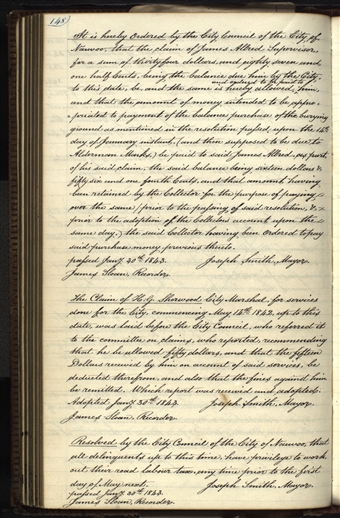 148
It is hereby Ordered by the City Council of the City of
Nauvoo, that the claim of James Allred Supervisor
for a sum of thirtyfour dollars, and eighty seven and
one half Cents, being the balance due him by the City,
and ordered to be paid to
to this date, be and the same is hereby allowed, him,
and that the amount of money intended to be appro-
-priated to payment of the balance purchase of the burying
ground as mentioned in the resolution passed, upon the 14th
day of January instant, (and then supposed to be due to
Alderman Marks,) be paid to said James Allred, as part
of his said claim, the said balance being sixteen dollars &
fifty six and one fourth Cents, and that amount having
been retained by the Collector for the purpose of paying
over the same, (prior to the passing of said resolution, &
prior to the adoption of the Collectors account upon the
same day,) the said Collector having been Ordered to pay
said purchase money previous thereto.
passed Jany. 30th 1843. Joseph Smith, Mayor.
James Sloan, Recorder.
The Claim of H. G. Sherwood City Marshal, for services
done for the City, commencing May 14th 1842, up to this
date, was laid before the City Council, who referred it
to the committee on claims, who reported, recommending
that he be allowed fifty dollars, and that the fifteen
Dollars received by him on account of said services, be
deducted therefrom, and also that the fines against him
be remitted. Which report was received and adopted.
Adopted Jany. 30th 1843. Joseph Smith, Mayor.
James Sloan, Recorder.
Resolved by the City Council of the City of Nauvoo, that
all delinquents up to this time, have privilege to work
out their road labour tax, any time prior to the first
day of May next. Joseph Smith, Mayor.
passed Jany. 30th 1843.
James Sloan, Recorder.